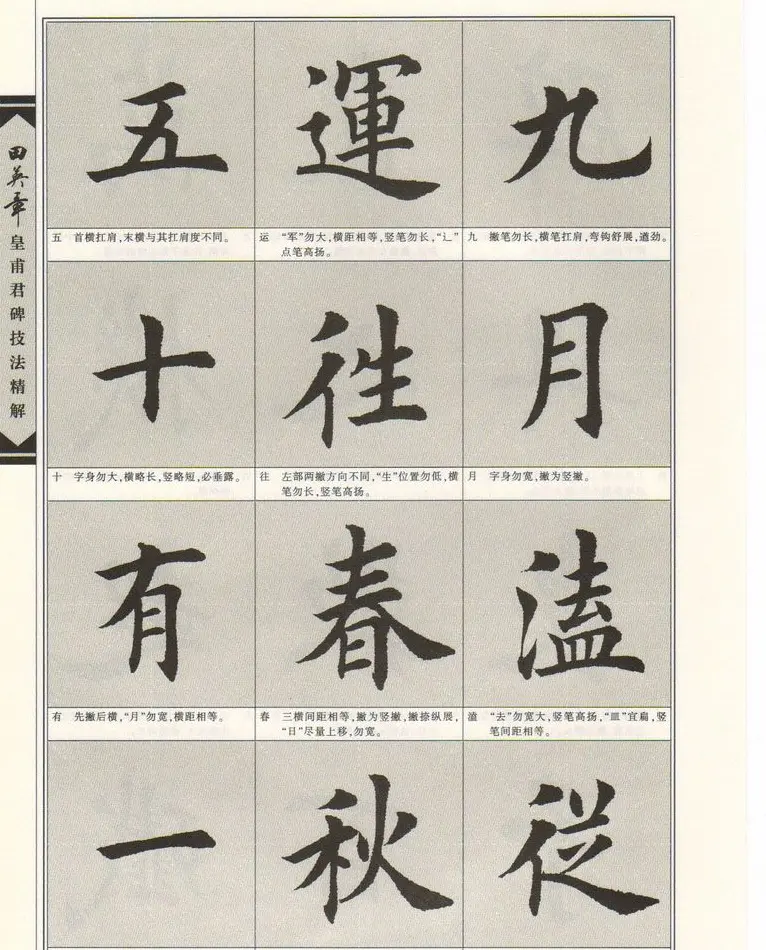 田英章
皇甫君碑技法精解
五 運 九
五 首横扛肩,末横与其扛肩度不同。
运 “军”勿大,横距相等,竖笔勿长,“辶”
点笔高扬。
九 撇笔勿长,横笔扛肩,弯钩舒展,遒劲。
十 徃 月
十 字身勿大,横略长,竖略短,必垂露。
往 左部两撇方向不同,“生”位置勿低,横
笔勿长,竖笔高扬。
月 字身勿宽,撇为竖撇。
有 春 溘
有 先撇后横,“月”勿宽,横距相等。
春 三横间距相等,撇为竖撇,撇捺纵展,
“日”尽量上移,勿宽。
溘 “去”勿宽大,竖笔高扬,“皿”宜扁,竖
笔间距相等。
一 秋 從